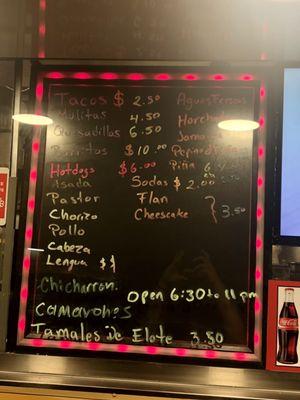 Tacos $ 2.50
Mulitas 4.50
Quesadillas 6.50
Burritos $10.00
Hotdogs $6.00
Asada
Pastor
Chorizo
Pollo
Cabeza
Lengua $1
Chicharron
Camarones
Tamales De Elote 3.50
Aguas Fresas
Horchata
Jamaica
Pepino
Piña
Sodas $ 2.00
Flan
Cheesecake } 3.50
Open 6:30 to 11 pm